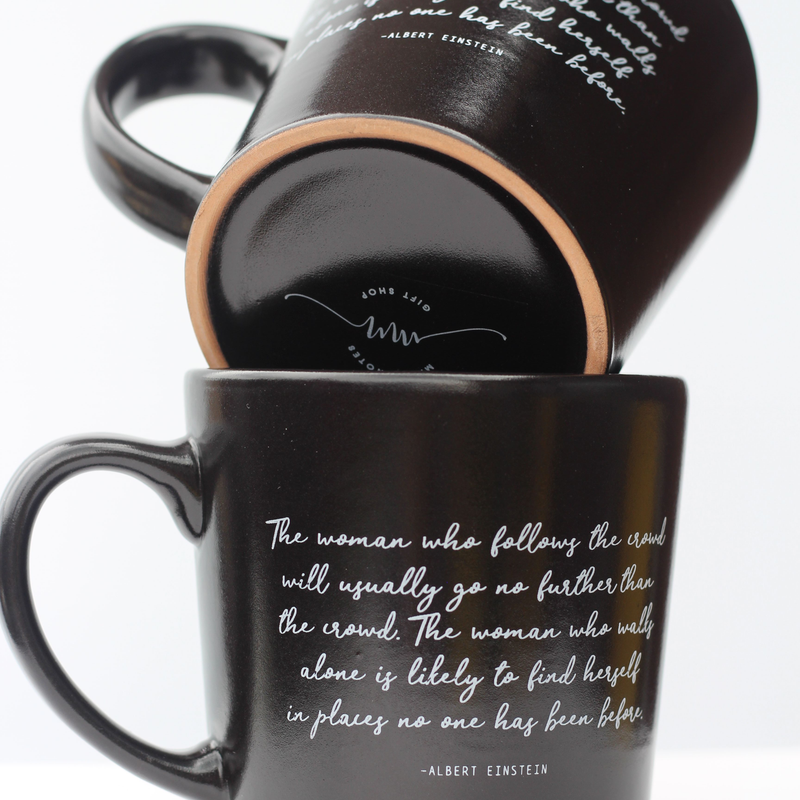 who walls
find herself
places no one has been before.
-ALBERT EINSTEIN
GIFT SHOP
The woman who follows the crowd
will usually go no further than
the crowd. The woman who walls
alone is likely to find herself
in places no one has been before.
-ALBERT EINSTEIN